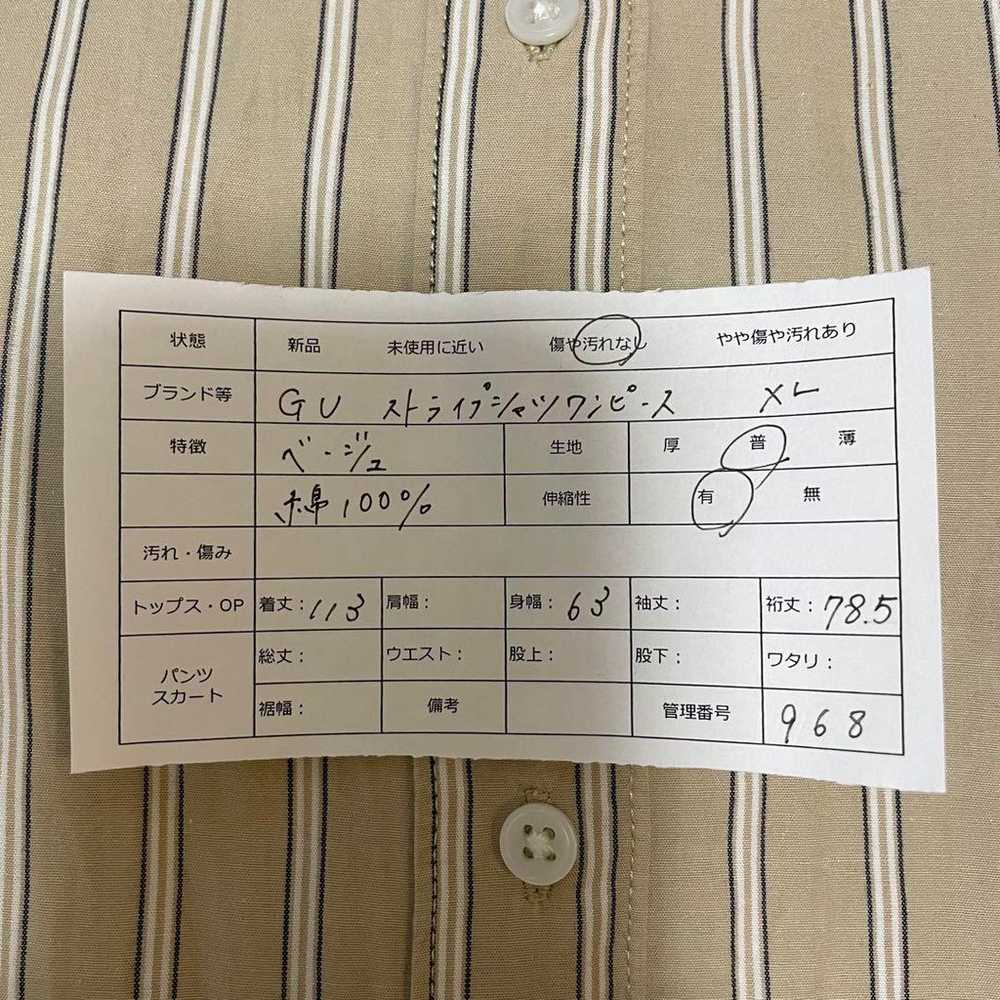 状態 新品 未使用に近い 傷や汚れなし やや傷や汚れあり
ブランド等 GU ストライプシャツワンピース XL
特徴 ベージュ 生地 厚 普 薄
綿100% 伸縮性 有 無
汚れ・傷み
トップス・OP 着丈：113 肩幅： 身幅：63 袖丈： 裄丈：78.5
パンツ スカート 総丈： ウエスト： 股上： 股下： ワタリ：
裾幅： 備考 管理番号 968